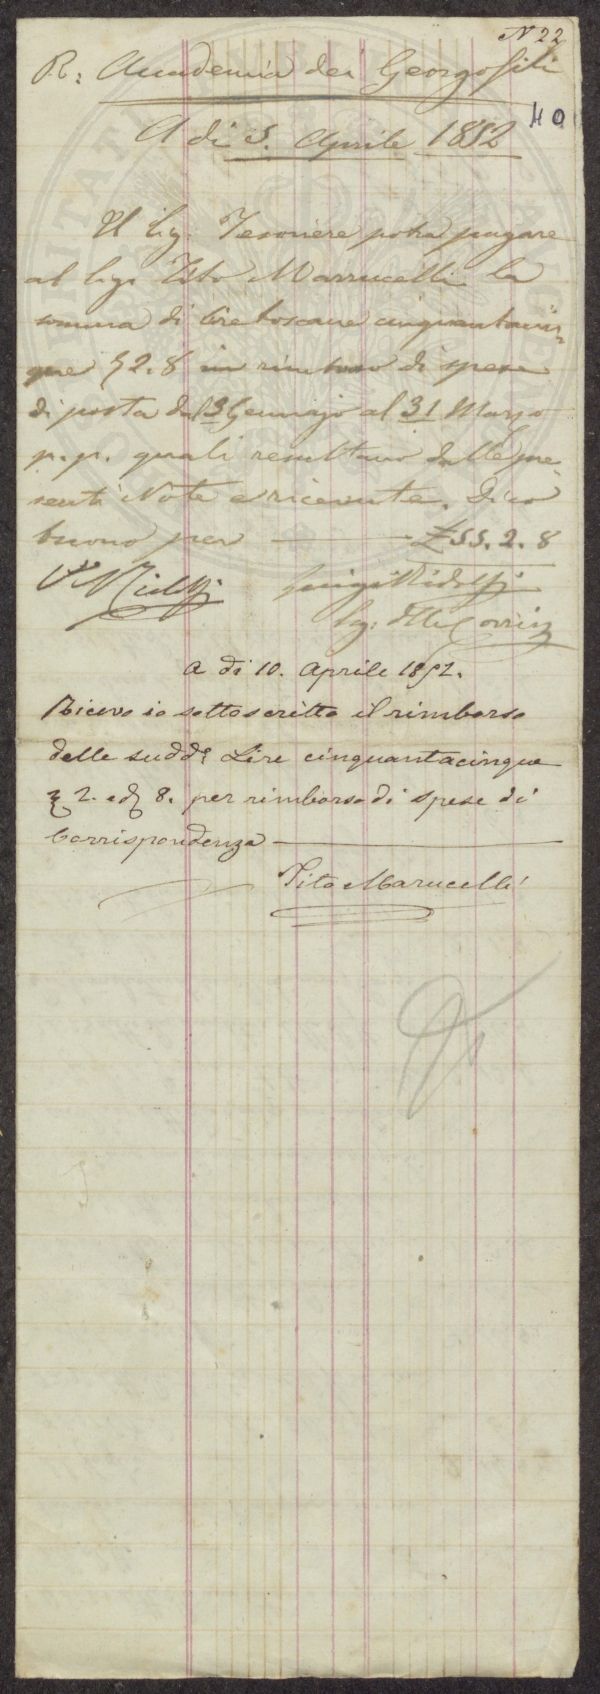 N 22
R: Accademia dei Georgofili
40
A di 5. Aprile 1852
Il Sig. Tesoriere potrà pagare
al Sig. Tito Marrucelli la
somma di Lire toscane cinquantacin=
que 2.8 in rimborso di spese
di posta dal 3 Gennajo al 31 Marzo
p.p. quali resultano dalle pre
senti Note e ricevute. Dico
buono per £55.2.8
V° Ridolfi Luigi Ridolfi
Seg. delle Corrisp
A di 10. Aprile 1852.
Ricevo io sottoscritto il rimborso
delle sudde Lire cinquantacinque
2. e 8. per rimborso di spese di
Corrispondenza
Tito Marucelli